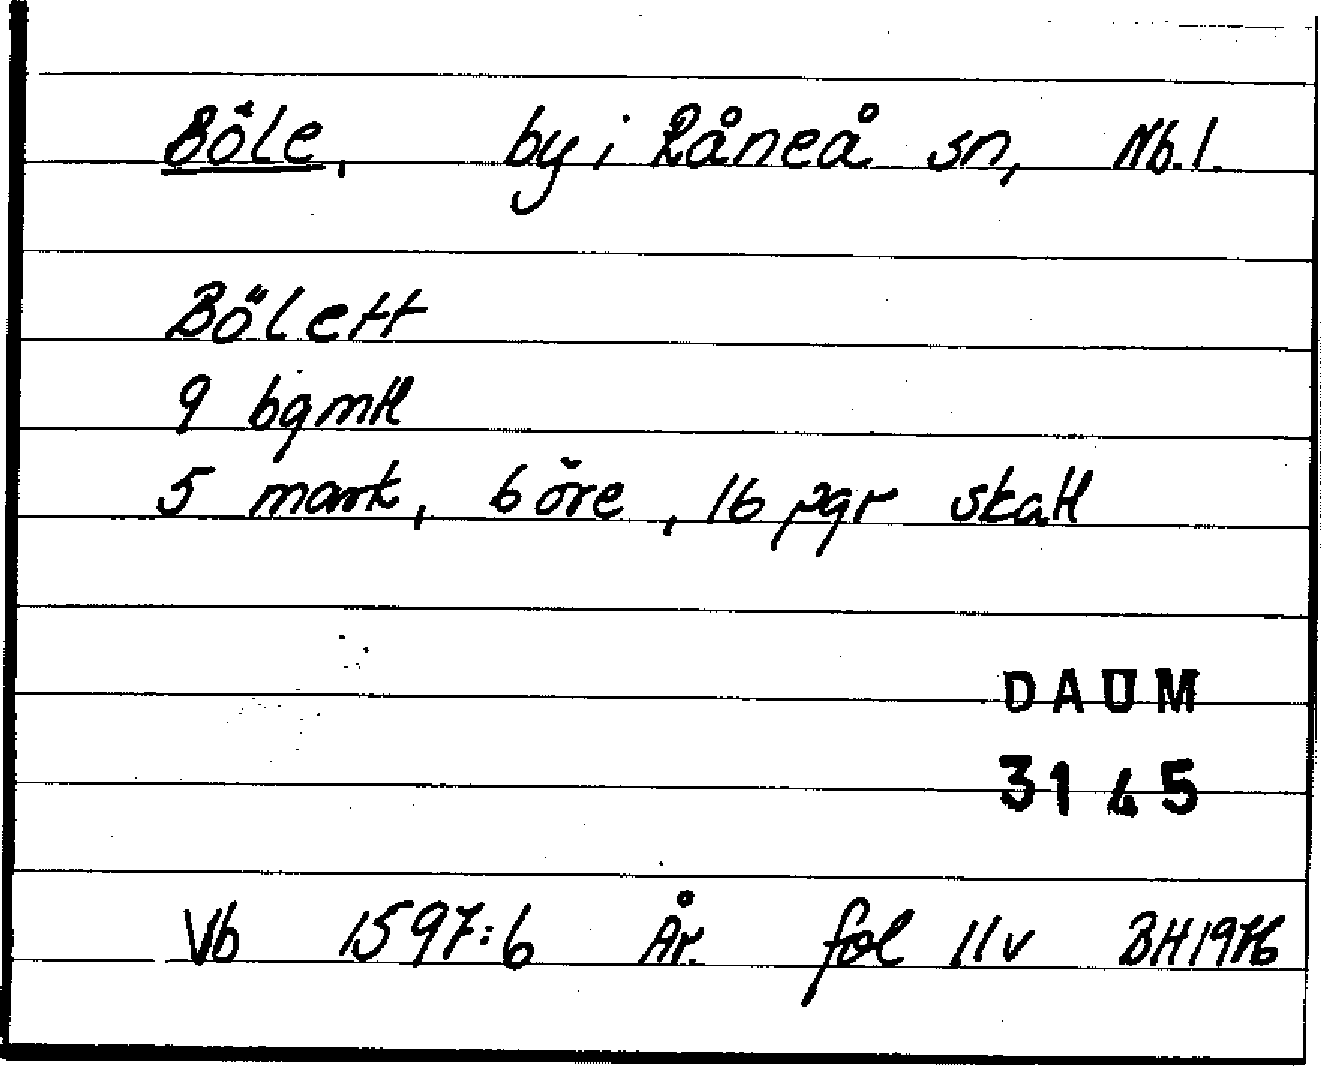 Böle, by i Råneå sn, Nb.l.
Bölett
9 bgmtl
5 mark, 6 öre, 16 pgr skatt
DAUM
3145
Vb 1597:6 År. fol 11v BH1976